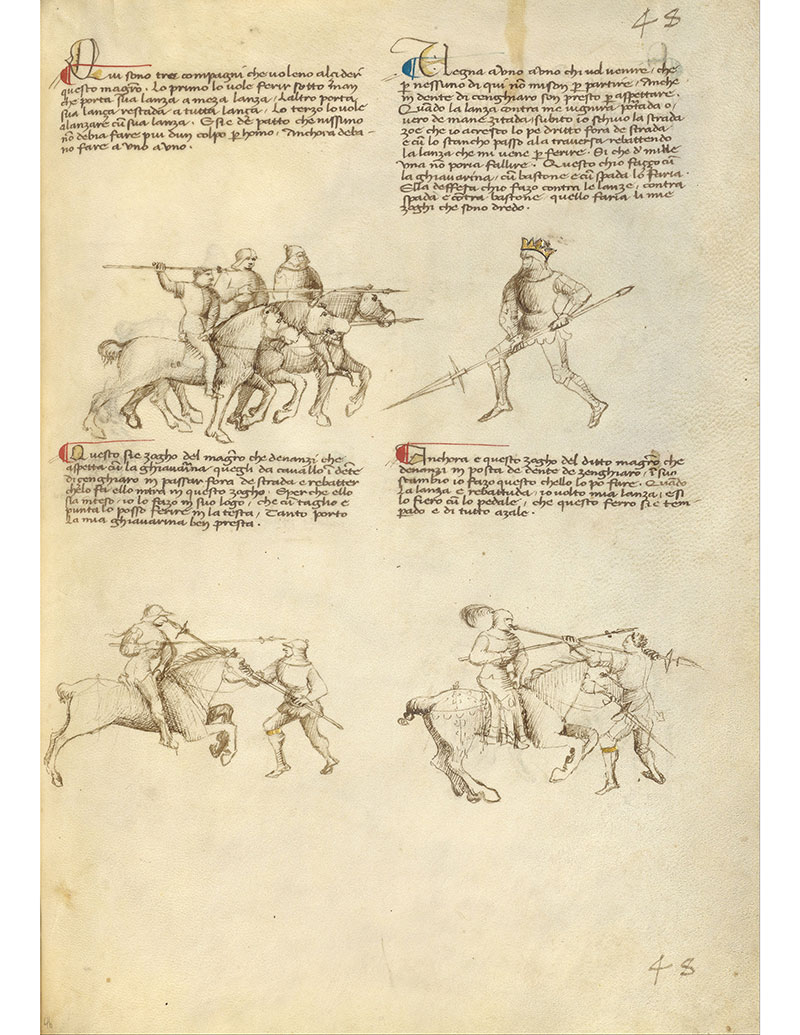 48
Qui sono tre compagni che voleno alcider
questo magro. Lo primo lo vole ferir sotto man
che porta sua lanza a meza lanza, Laltro porta
sua lança restada a tutta lança, Lo terzo lo vole
alanzare cũ sua lanza. E si e de patto che nissuno
nõ debia fare piu dun colpo ꝑ homo, Anchora deba-
no fare a uno a uno.
Vegna a uno a uno chi vol venire, che
ꝑ nessuno di qui nõ mi son ꝑ partire, Anche
in dente di cenghiaro son presto ꝑ aspettare.
Quãdo la lanza contra me vignira portada o,
vero de mane zitada, subito io schivo la strada
zoe che io acresco lo pe dritto fora de strada
e cũ lo stancho passo a la traversa rebattendo
la lanza che mi vene ꝑ ferire. Si che d' mille
una nõ poria fallire. Questo ch'io fazzo cũ
la ghiavarina, cũ bastone e cũ spada lo faria.
Ella deffesa ch'io fazo contra le lanze, contra
spada e cõtra bastone quello faria li mie
zoghi che sono dredo.
Questo si e zogho del magro che denanzi che
aspetta cũ la ghiavarina quegli da cavallo i dẽte
di cenghiaro in passar fora de strada e rebatter
chelo fa, ello intra in questo zogho. E per che ello
sia inteso, io lo fazo in suo logo, che cũ taglio e
punta lo posso ferire in la testa, Tanto porto
la mia ghiavarina ben presta.
Anchora e questo zogho del ditto magro che
denanzi in posta de dente de zenghiaro, i suo
scambio io fazo questo chello lo po fare. Quãdo
la lanza e rebattuda, io volto mia lanza, e si
lo fiero cũ lo pedale, che questo ferro si e tem-
perado e di tutto azale.
48